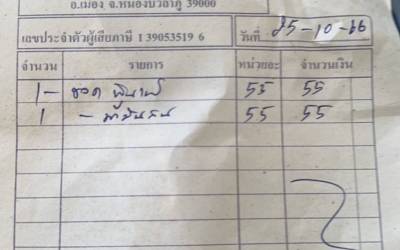 อ.เมือง จ.หนองบัวลำภู 39000
เลขประจำตัวผู้เสียภาษี 1 39053519 6 วันที่ 25-10-66
จำนวน รายการ หน่วยละ จำนวนเงิน
1 - 55 55
1 - 55 55